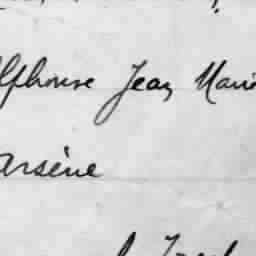 Alphonse Jean Marie
Arsène